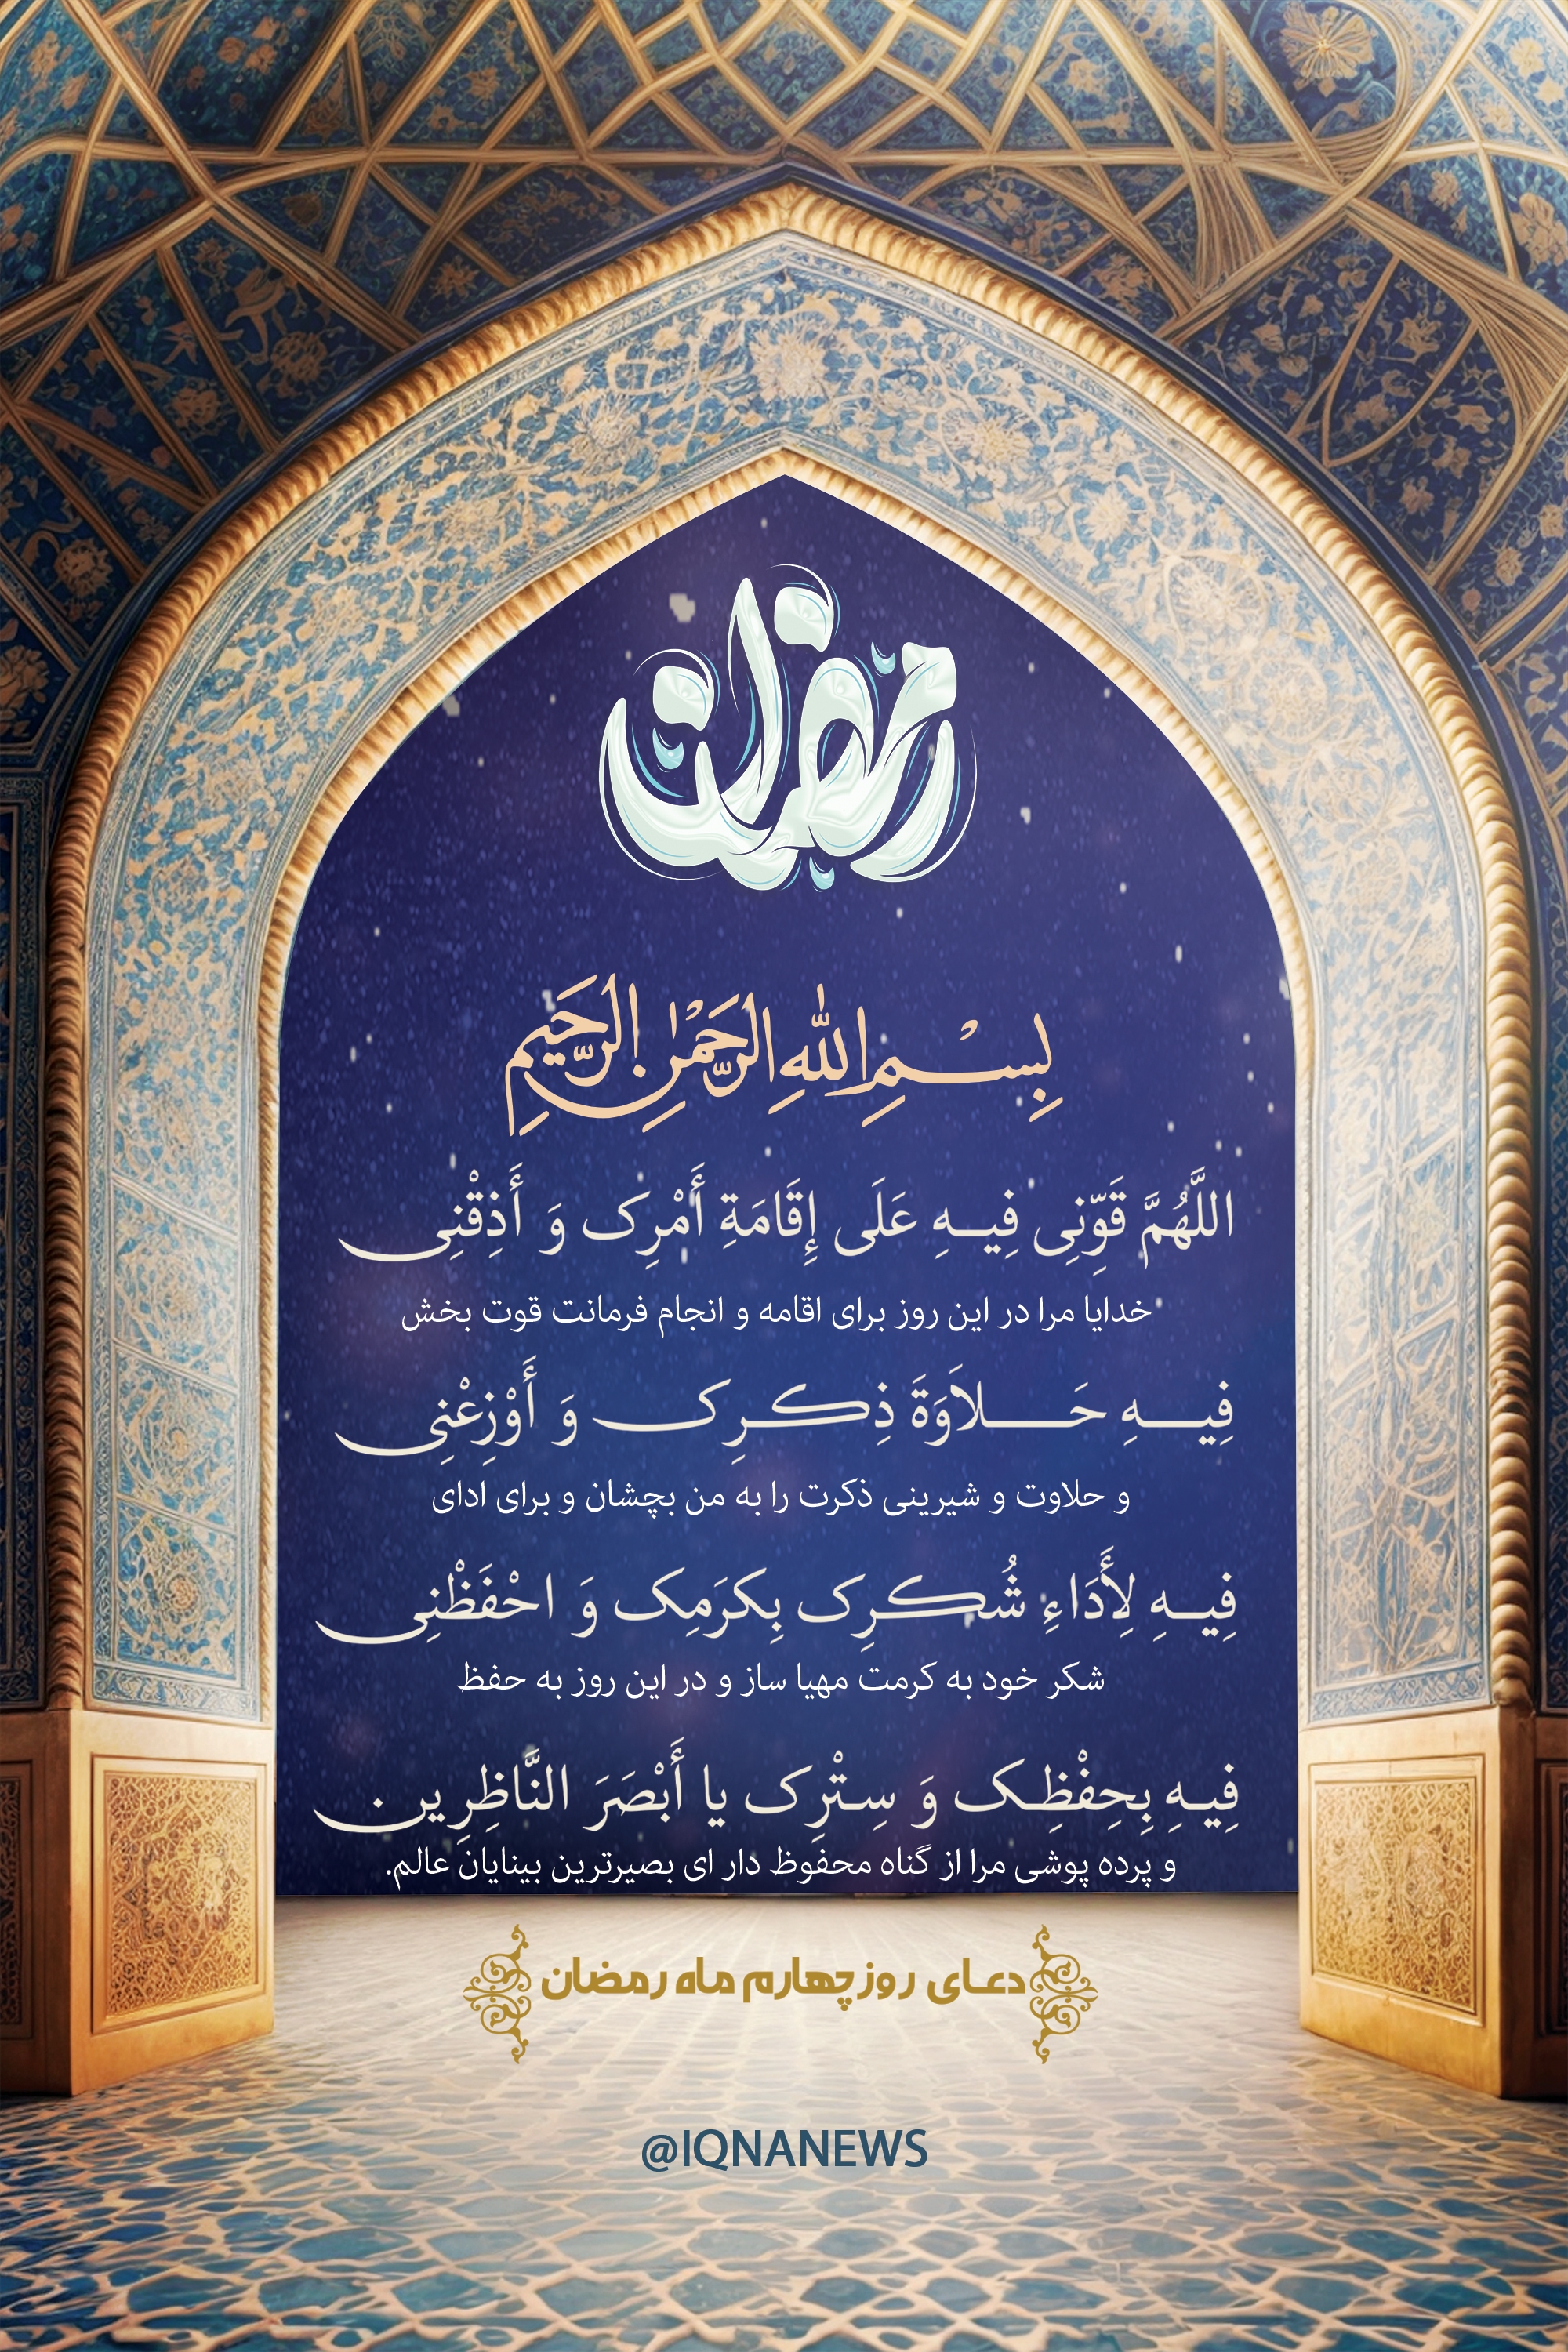 رمضان
بِسْمِ اللهِ الرَّحْمٰنِ الرَّحِيمِ
اللَّهُمَّ قَوِّنِی فِیـهِ عَلَی إِقَامَةِ أَمْرِک وَ أَذِقْنِی
خدایا مرا در این روز برای اقامه و انجام فرمانت قوت بخش
فِیـهِ حَـلاَوَةَ ذِکـرِک وَ أَوْزِعْنِی
و حلاوت و شیرینی ذکرت را به من بچشان و برای ادای
فِیـهِ لِأَدَاءِ شُکـرِک بِکرَمِک وَ احْفَظْنِی
شکر خود به کرمت مهیا ساز و در این روز به حفظ
فِیـهِ بِحِفْظِـک وَ سِـتْرِک یا أَبْصَرَ النَّاظِرِین.
و پرده پوشی مرا از گناه محفوظ دار ای بصیرترین بینایان عالم.
دعـای روز چهارم ماه رمضان
@IQNANEWS